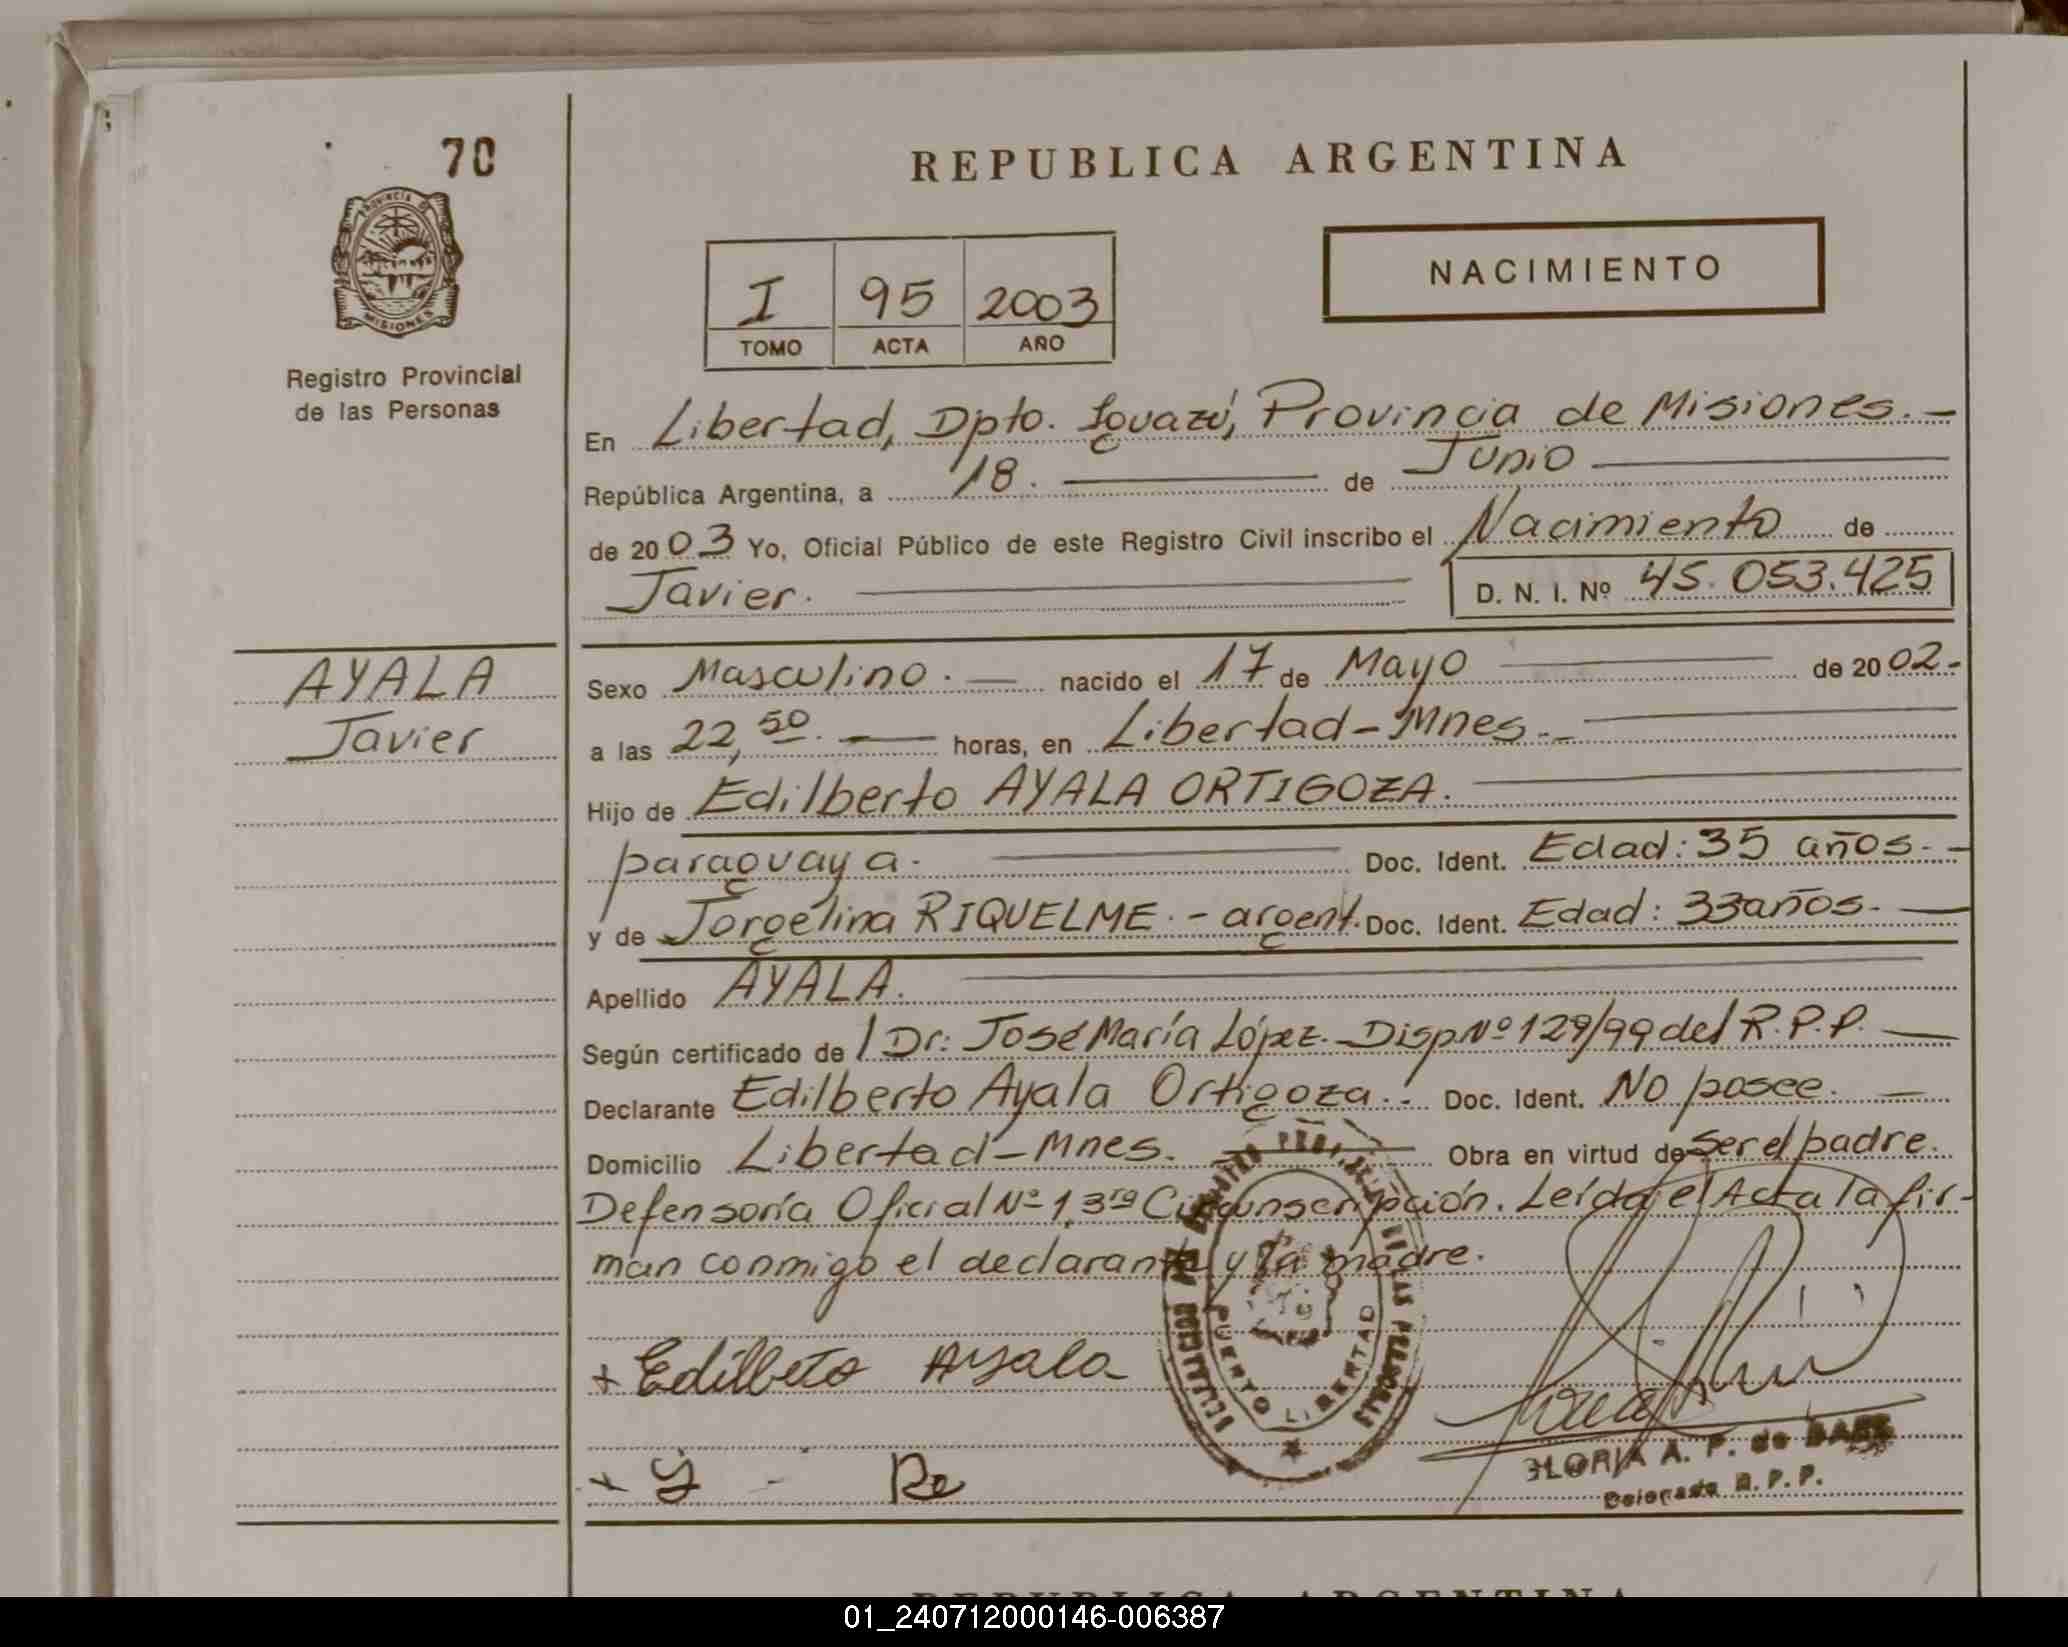 70
PROVINCIA DE
MISIONES
Registro Provincial
de las Personas
REPUBLICA ARGENTINA
NACIMIENTO
I 95 2003
TOMO ACTA AÑO
En Libertad, Dpto. Iguazú, Provincia de Misiones.-
República Argentina, a 18. de Junio
de 2003 Yo, Oficial Público de este Registro Civil inscribo el Nacimiento de
Javier. D. N. I. Nº 45.053.425
AYALA
Javier
Sexo Masculino. nacido el 17 de Mayo de 2002.-
a las 22,50. horas, en Libertad-Mnes.-
Hijo de Edilberto AYALA ORTIGOZA.
paraguaya. Doc. Ident. Edad: 35 años.-
y de Jorgelina RIQUELME.- argent. Doc. Ident. Edad: 33 años.
Apellido AYALA.
Según certificado del Dr: José María López. Disp. Nº 129/99 del R.P.P.
Declarante Edilberto Ayala Ortigoza.- Doc. Ident. No posee.
Domicilio Libertad-Mnes. Obra en virtud de Ser el padre.
Defensoría Oficial Nº 1, 3ra Circunscripción. Leída el Acta la fir-
man conmigo el declarante y la madre.
PUERTO LIBERTAD
+ Edilbeto Ayala
GLORIA A. P. de
Delegada R.P.P.
REPUBLICA ARGENTINA
01_240712000146-006387